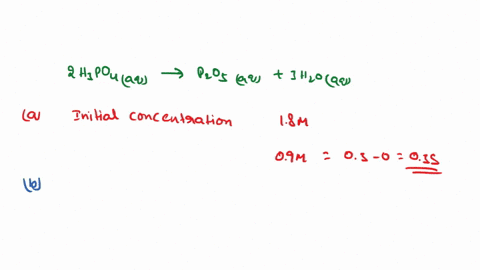 2H₃PO₄(aq) → P₂O₅(aq) + 3H₂O(aq)
(a) Initial concentration 1.8M
0.9M = 0.5-0 = 0.5s
(b)